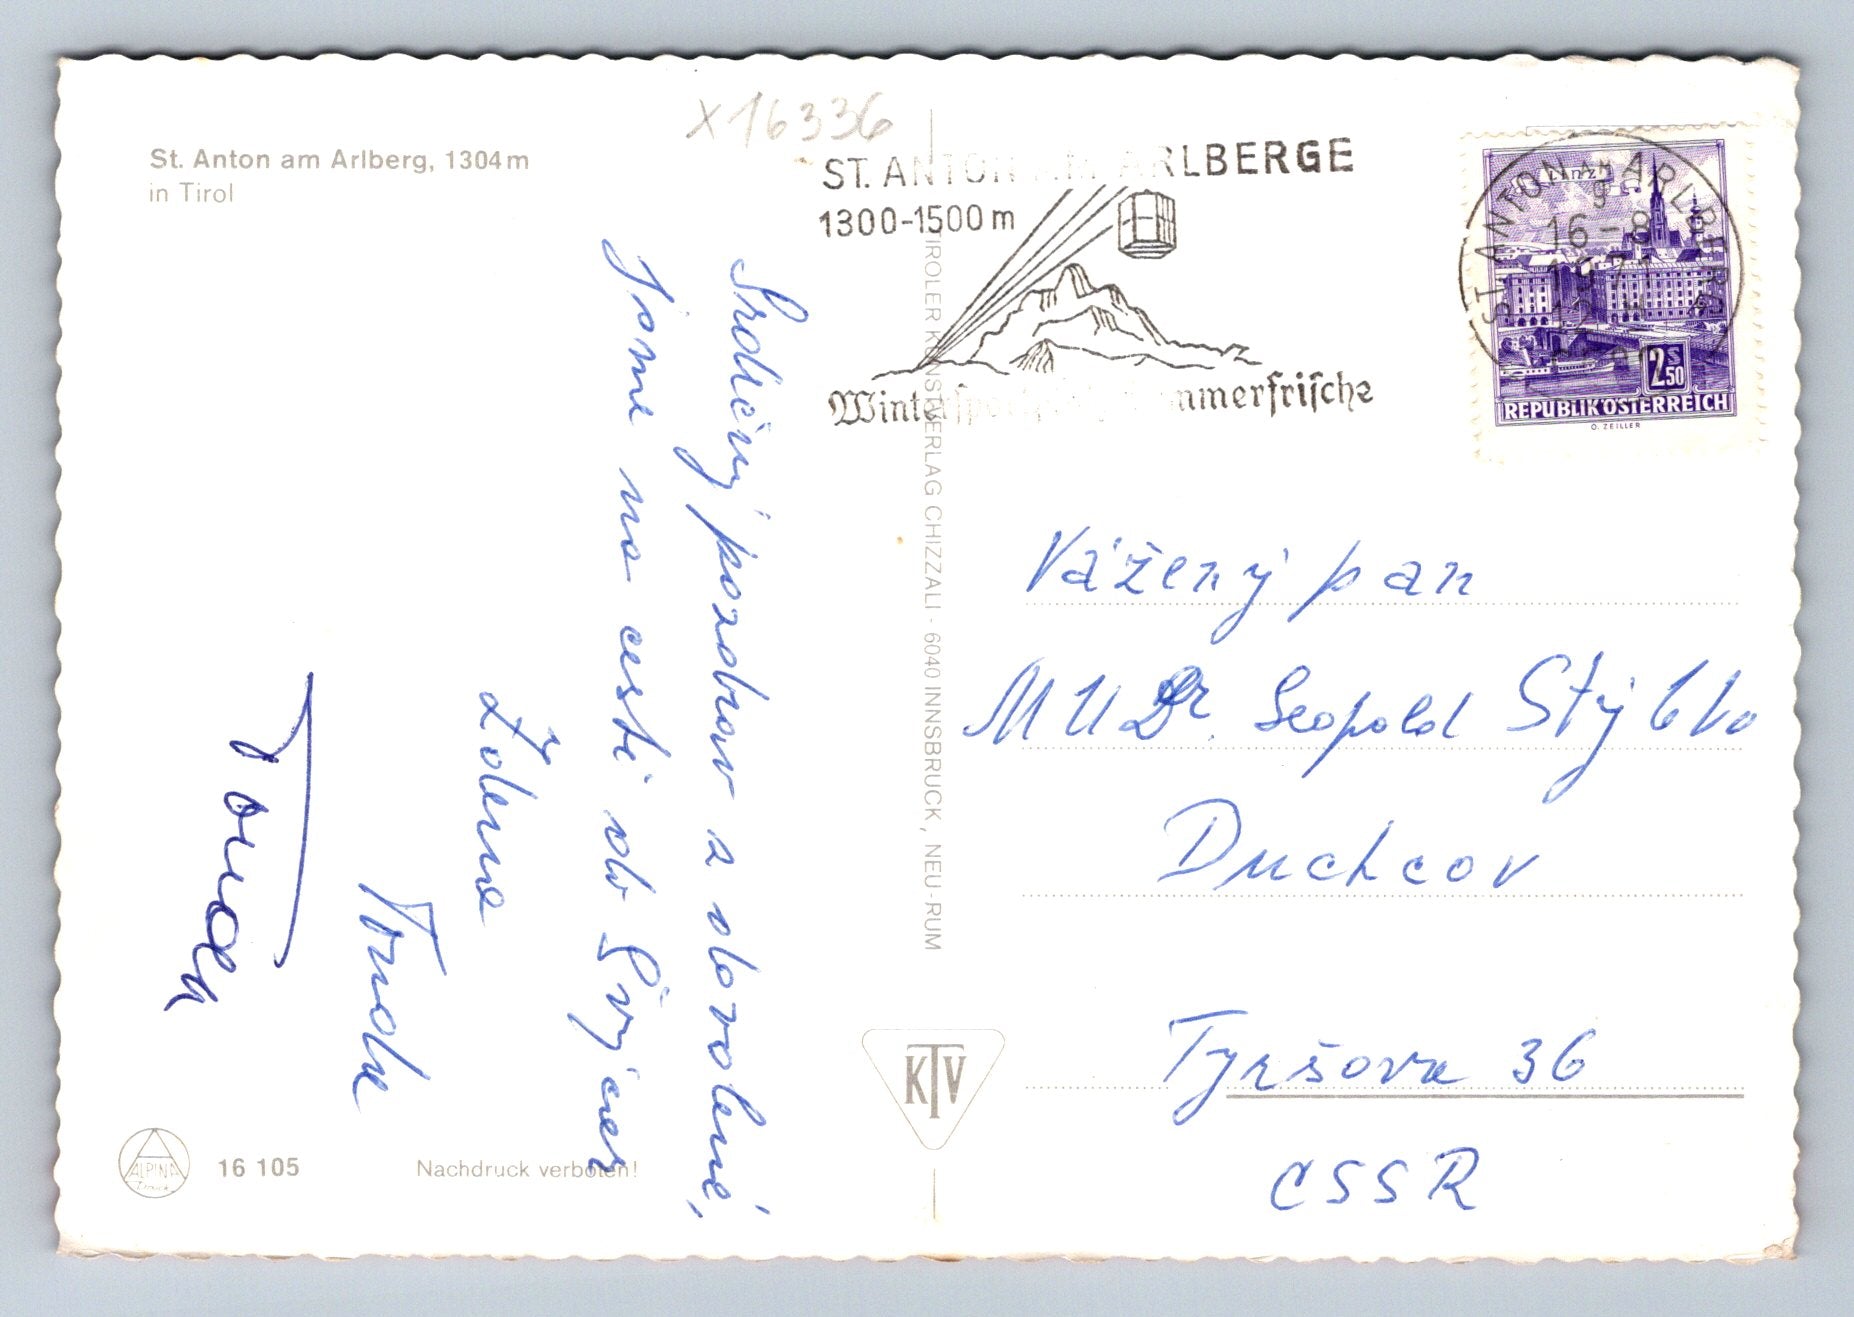 x 16336
St. Anton am Arlberg, 1304 m
in Tirol
ST. ANTON AM ARLBERGE
1300-1500 m
Wintersport Sommerfrische
ST. ANTON AM ARLBERG
16-8
1971
12
Linz
2 S 50
REPUBLIK ÖSTERREICH
O. ZEILLER
Srdečný pozdrav z dovolené,
jsme na cestě do Švýcar
Zdena
Tonda
Tonda
TIROLER KUNSTVERLAG CHIZZALI - 6040 INNSBRUCK, NEU-RUM
Vážený pan
MUDr. Leopold Stýblo
Duchcov
Tyršova 36
ČSSR
KTV
ALPINA
16 105
Nachdruck verboten!